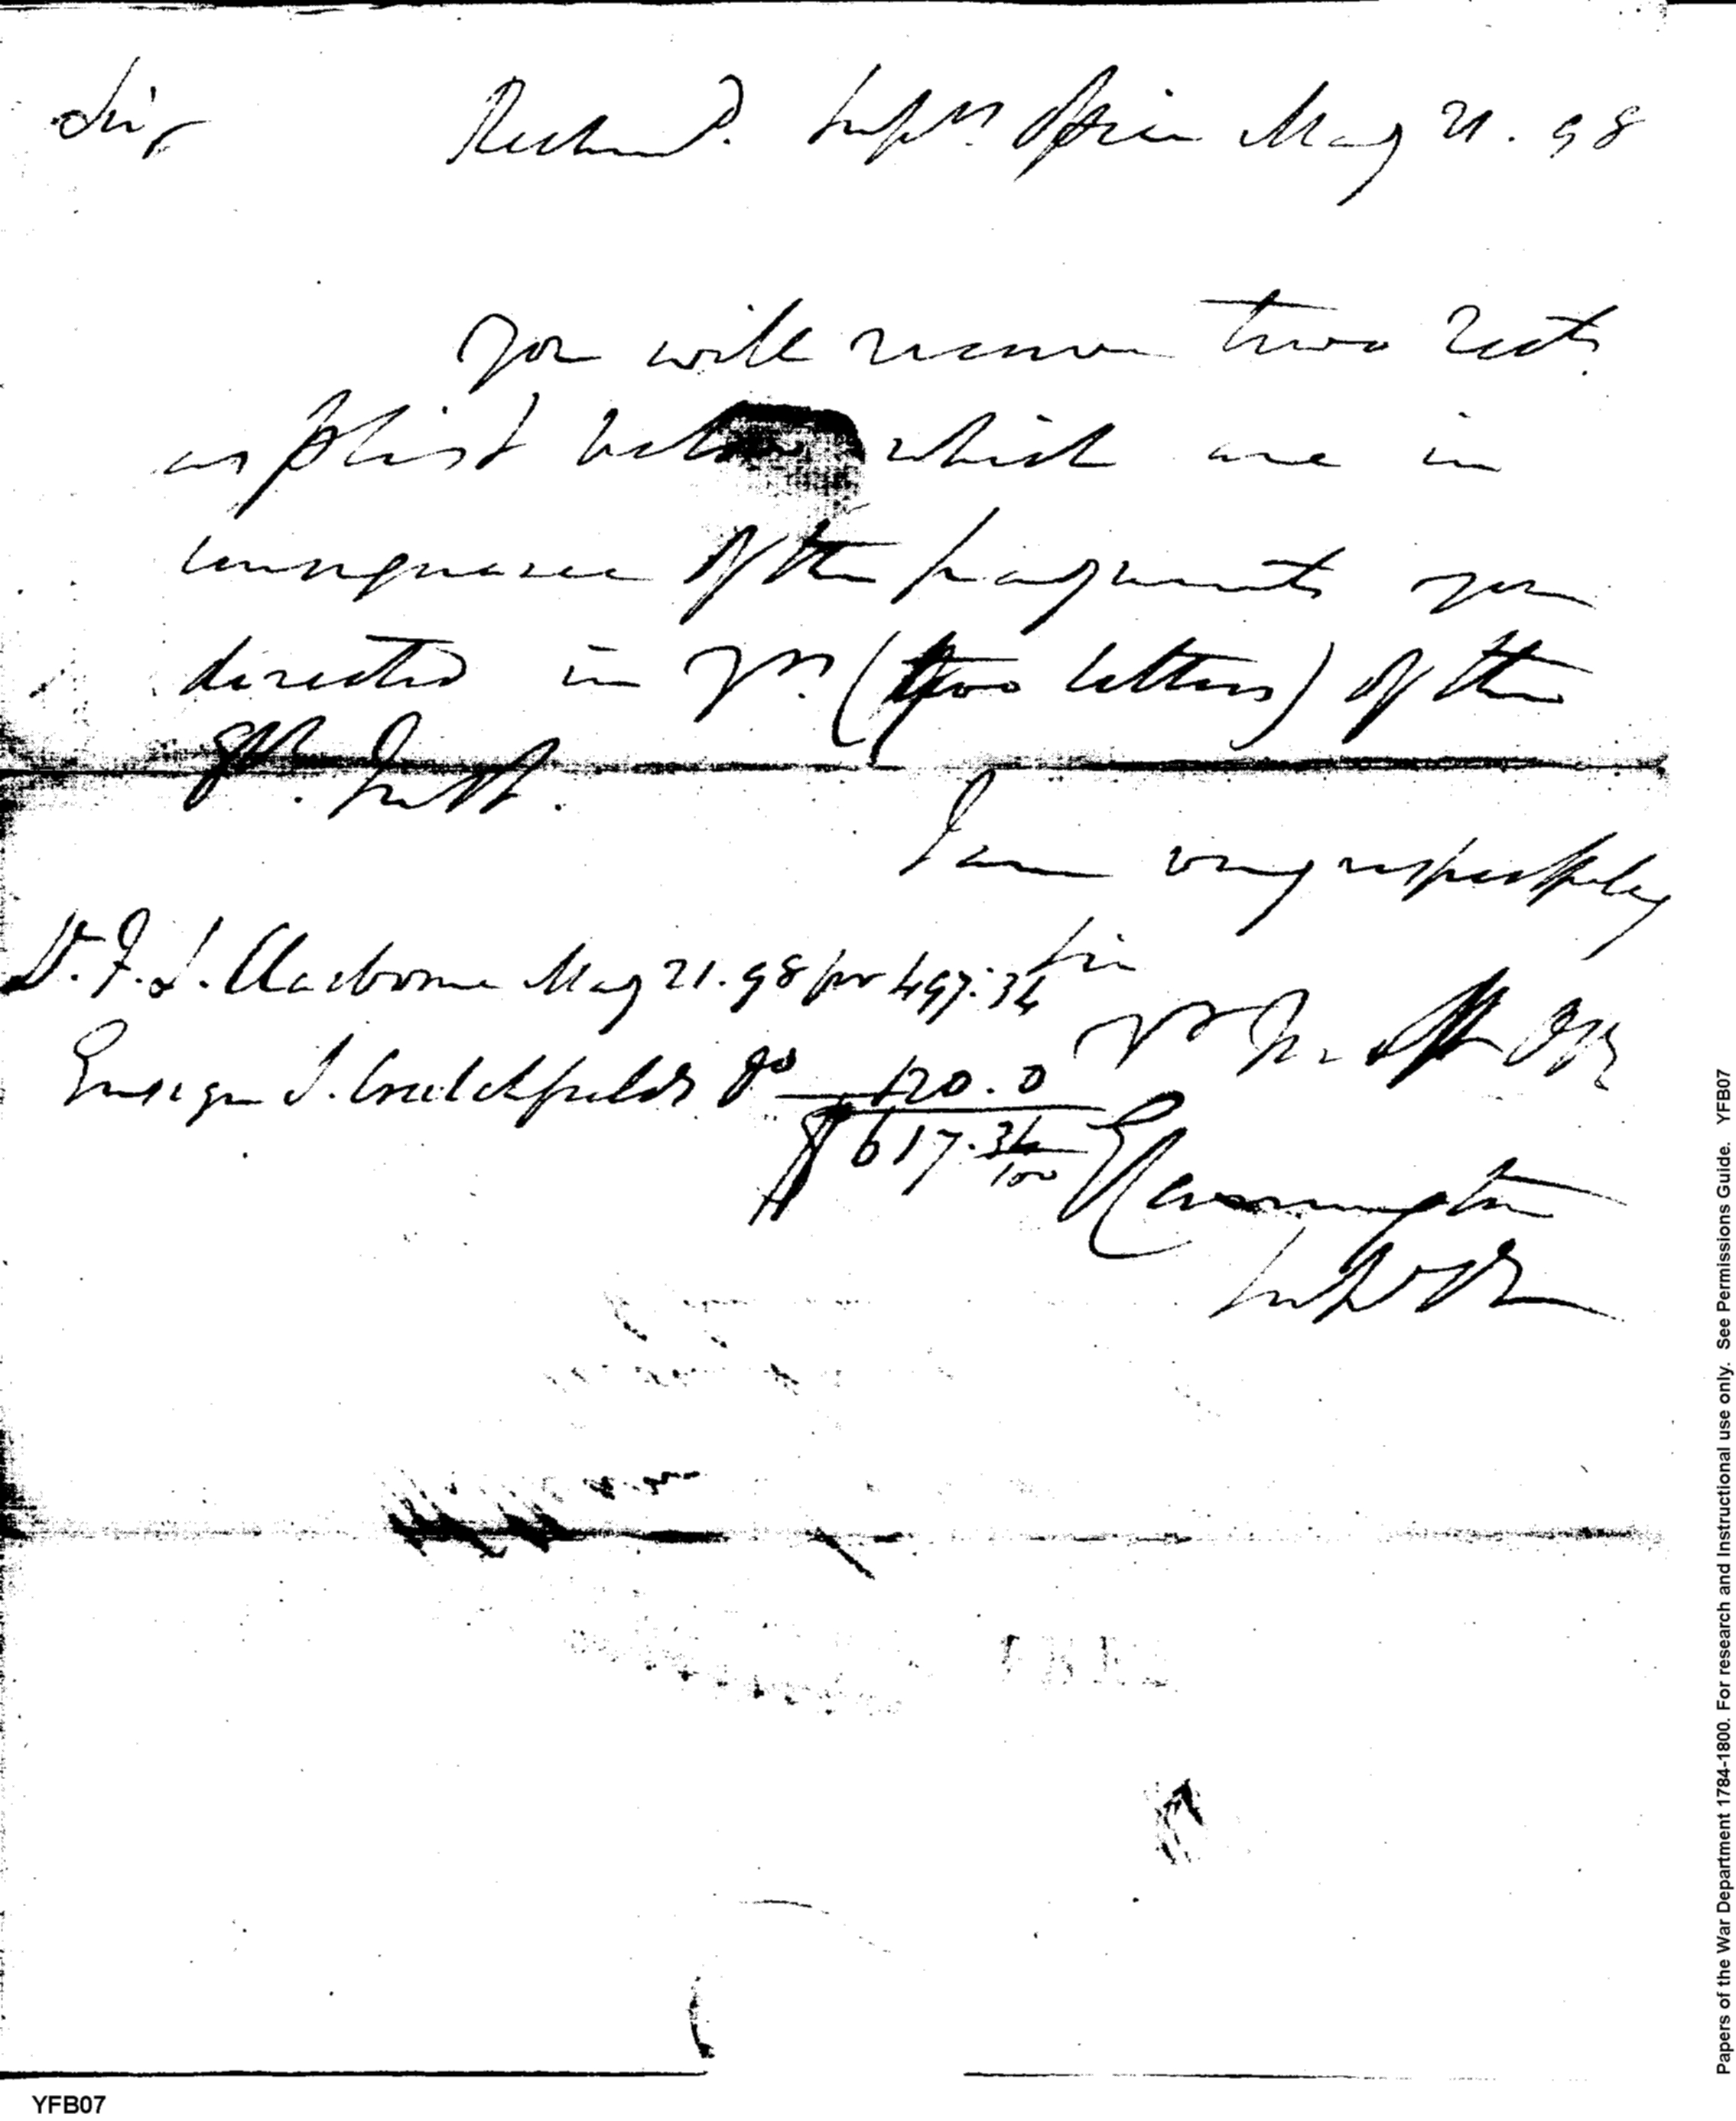 Sir Richmond. Supvrs Office May 21. 98
You will receive two rects
as p list below which are in
consequence of the payments you
directed in yrs (two letters) of the
9th Inst.
I am very respectfully
Sir
Lt. F. L. Claiborne May 21. 98 for 497.34
Ensign J. Crutchfields do 120.0
$ 617.34/100
Yr Mo Obt
E Carrington
YFB07
Papers of the War Department 1784-1800. For research and instructional use only. See Permissions Guide. YFB07